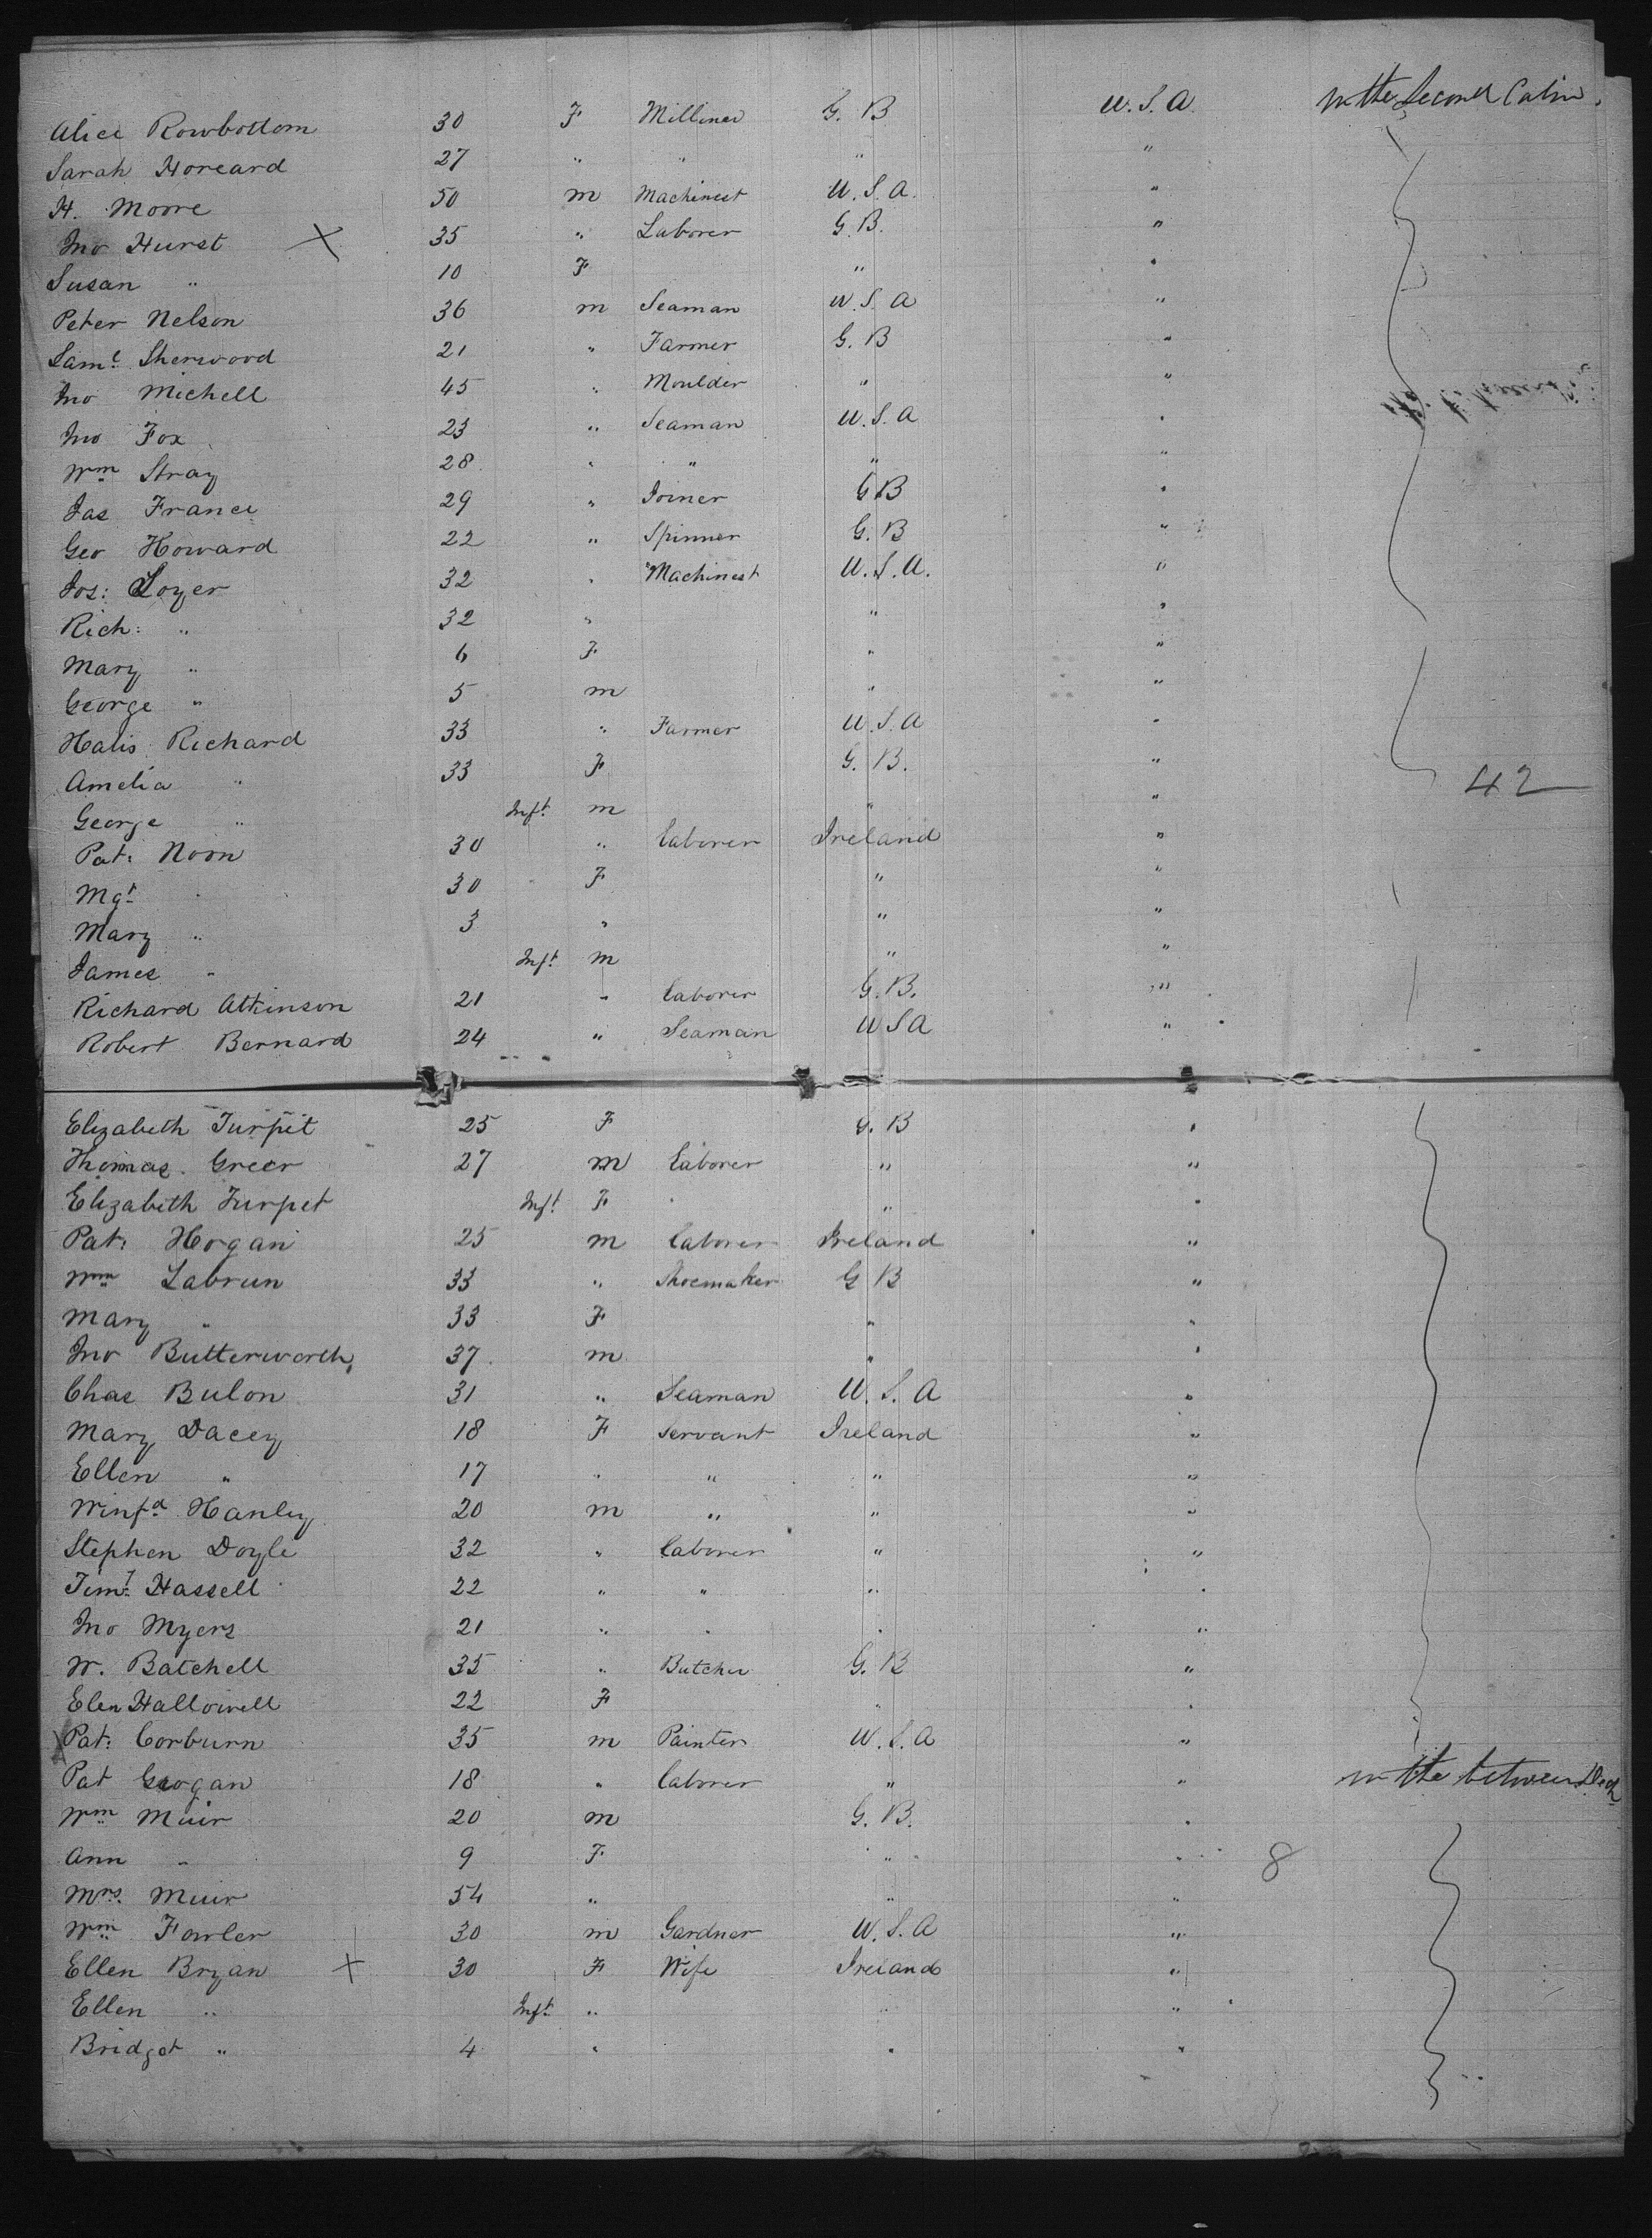 Alice Rowbottom 30 F Milliner G. B U. S. A. In the Second Cabin.
Sarah Howard 27 " " " "
H. Moore 50 m Machinest U. S. A. "
Jno Hurst X 35 " Laborer G. B. "
Susan " 10 F " "
Peter Nelson 36 m Seaman U. S. A "
Saml. Sherwood 21 " Farmer G. B "
Jno Michell 45 " Moulder " "
Jno Fox 23 " Seaman U. S. A "
Wm Stray 28 " " " "
Jas France 29 " Joiner G B "
Geo Howard 22 " Spinner G. B "
Jos: Loyer 32 " Machinest U. S. A. "
Rich: " 32 " " "
Mary " 6 F " "
George " 5 m " "
Halis Richard 33 " Farmer U. S. A "
Amelia " 33 F G. B. " 42
George " Inft. m " "
Pat: Noon 30 " Laborer Ireland "
Mgt " 30 F " "
Mary " 3 " " "
James " Inft. m " "
Richard Atkinson 21 " Laborer G. B. "
Robert Bernard 24 " Seaman U S A "
Elizabeth Turpit 25 F G. B "
Thomas Greer 27 m Laborer " "
Elizabeth Turpet Inft. F " "
Pat: Hogan 25 m Laborer Ireland "
Wm Labrun 33 " Shoemaker G B "
Mary " 33 F " "
Jno Butterworth 37 m " "
Chas Bulon 31 " Seaman U. S. A "
Mary Dacey 18 F Servant Ireland "
Ellen " 17 " " " "
Winfd Hanley 20 m " " "
Stephen Doyle 32 " Laborer " "
Timy Hassell 22 " " " "
Jno Myers 21 " " " "
W. Batchell 35 " Butcher G. B "
Elen Hallowell 22 F " "
X Pat: Corburn 35 m Painter U. S. A "
Pat Grogan 18 " Laborer " " In the between Deck
Wm Muir 20 m G. B. "
Ann " 9 F " " 8
Mrs. Muir 54 " " "
Wm Fowler 30 m Gardner U. S. A "
Ellen Bryan X 30 F Wife Ireland "
Ellen " Inft " " "
Bridget " 4 " " "